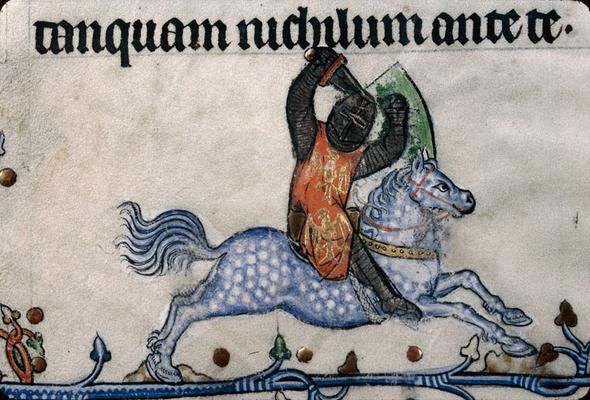 tanquam nichilum ante te.